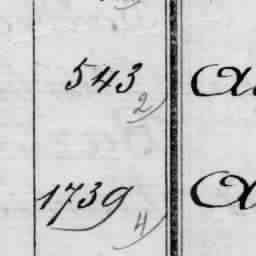 543
2)
1739
4)